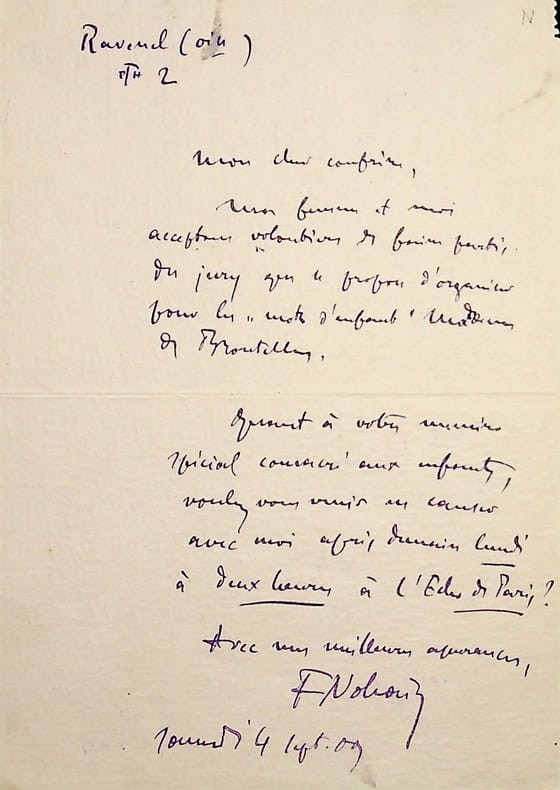 Ravenel (oin)
2
Mon cher confrère,
Ma femme et moi
acceptons volontiers de faire partie
du jury que se propose d'organiser
pour les "mots d'enfants" Madame
de Broutelles.
Quant à votre numéro
spécial consacré aux enfants,
voulez vous venir en causer
avec moi après demain lundi
à deux heures à l'Echo de Paris ?
Avec mes meilleures assurances,
F Nohain
samedi 4 sept. 09
N